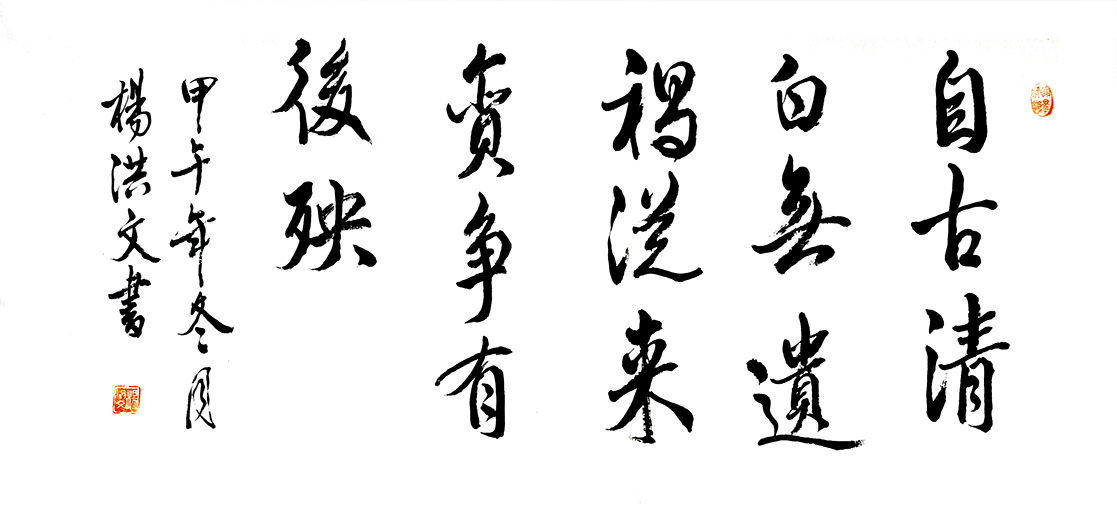 自古清
白無遺
禍從来
貪争有
後殃
甲午年冬月
楊洪文書